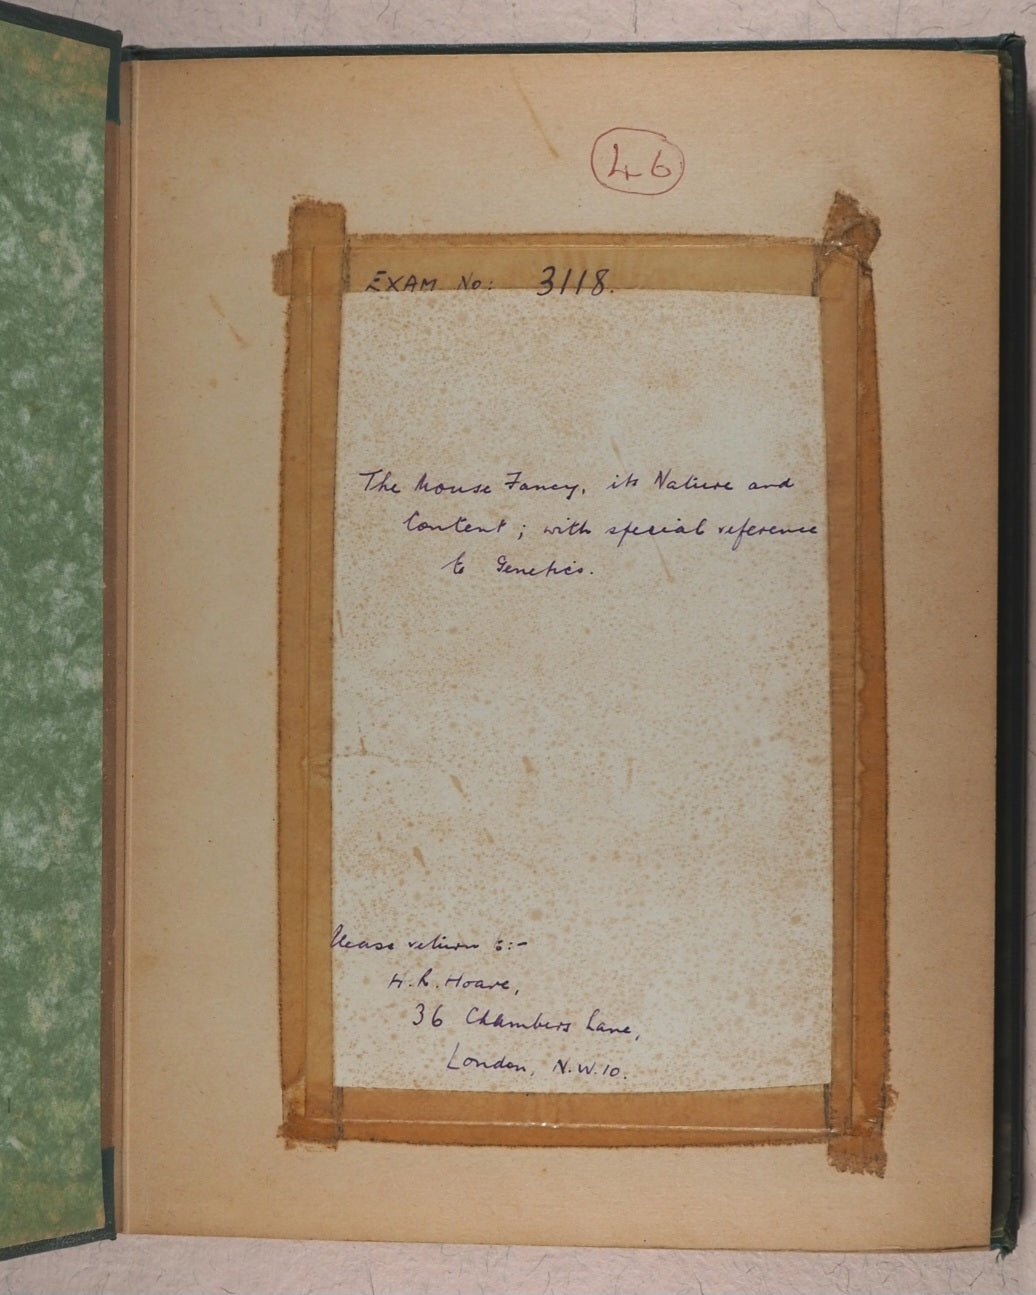 46
EXAM No: 3118.
The Mouse Fancy, its Nature and
Content; with special reference
to Genetics.
Please return to:-
H.R. Hoare,
36 Chambers Lane,
London, N.W.10.